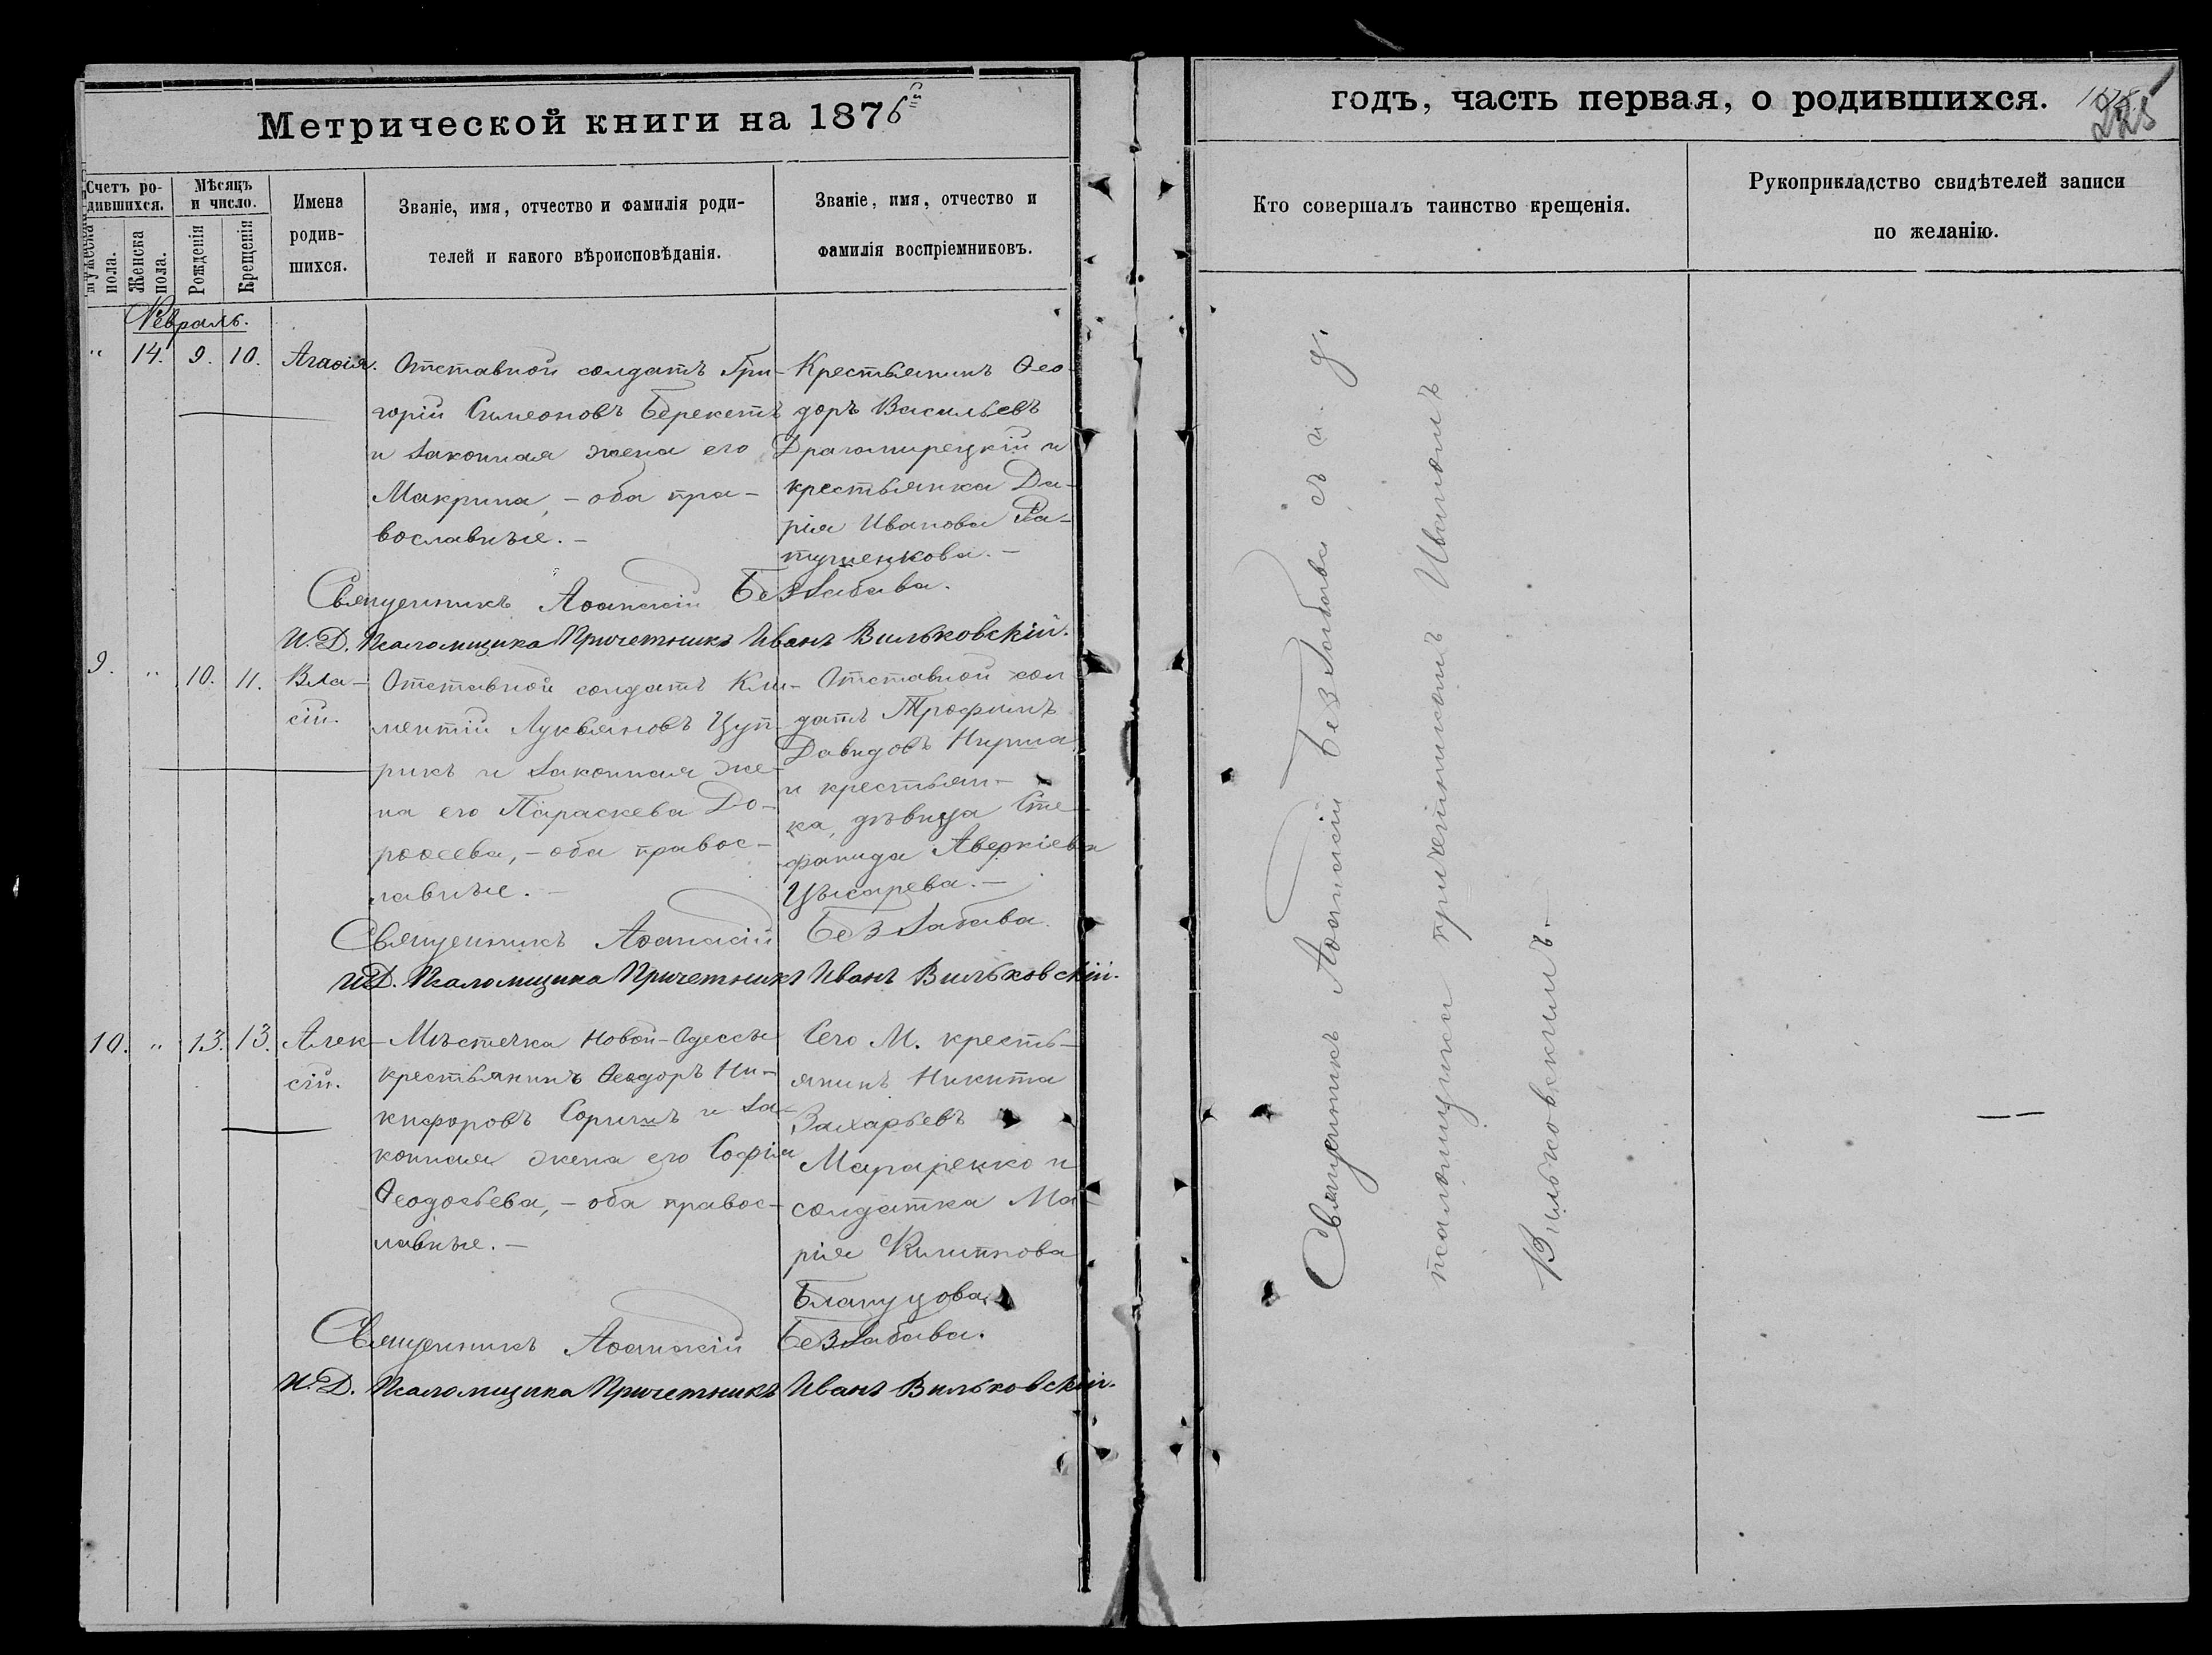 Метрической книги на 1876й
годъ, часть первая, о родившихся.
225
Счетъ ро-
дившихся.
Мѣсяцъ
и число.
Мужеска
пола.
Женска
пола.
Рожденія
Крещенія
Имена
родив-
шихся.
Званіе, имя, отчество и фамилія роди-
телей и какого вѣроисповѣданія.
Званіе, имя, отчество и
фамилія воспріемниковъ.
Кто совершалъ таинство крещенія.
Рукоприкладство свидѣтелей записи
по желанію.
Февраль.
" 14. 9. 10. Агафія.
Отставной солдатъ Гри-
горій Симеоновъ Берекетъ
и законная жена его
Макрина, - оба пра-
вославные. -
Крестьянинъ Ѳео-
доръ Васильевъ
Драгомирецкій и
крестьянка Да-
рія Иванова Ра-
тушенкова. -
Священникъ Аѳанасій Беззабава.
И. Д. Псаломщика Причетникъ Иванъ Вильковскій.
9. " 10. 11. Вла-
сій.
Отставной солдатъ Кли-
ментій Лукьяновъ Цуп-
рикъ и законная же-
на его Параскева До-
роѳеева, - оба правос-
лавные. -
Отставной сол
датъ Трофимъ
Давидовъ Нирша
и крестьян-
ка, дѣвица Сте-
фанида Аверкіева
Цысарева. -
Священникъ Аѳанасій Беззабава.
И.Д. Псаломщика Причетникъ Иванъ Вильковскій.
10. " 13. 13. Алек-
сій.
Мѣстечка Новой-Одессы
крестьянинъ Ѳеодоръ Ни-
кифоровъ Соричъ и за-
конная жена его Софія
Ѳеодосьева, - оба правос-
лавные. -
Сего М. кресть-
янинъ Никита
Захарьевъ
Мараренко и
солдатка Ма
рія Филиппова
Блануцова.
Священникъ Аѳанасій Беззабава.
И. Д. Псаломщика Причетникъ Иванъ Вильковскій.
Священникъ Аѳанасій Беззабава съ и. д.
псаломщика причетникомъ Иваномъ
Вильковскимъ. -